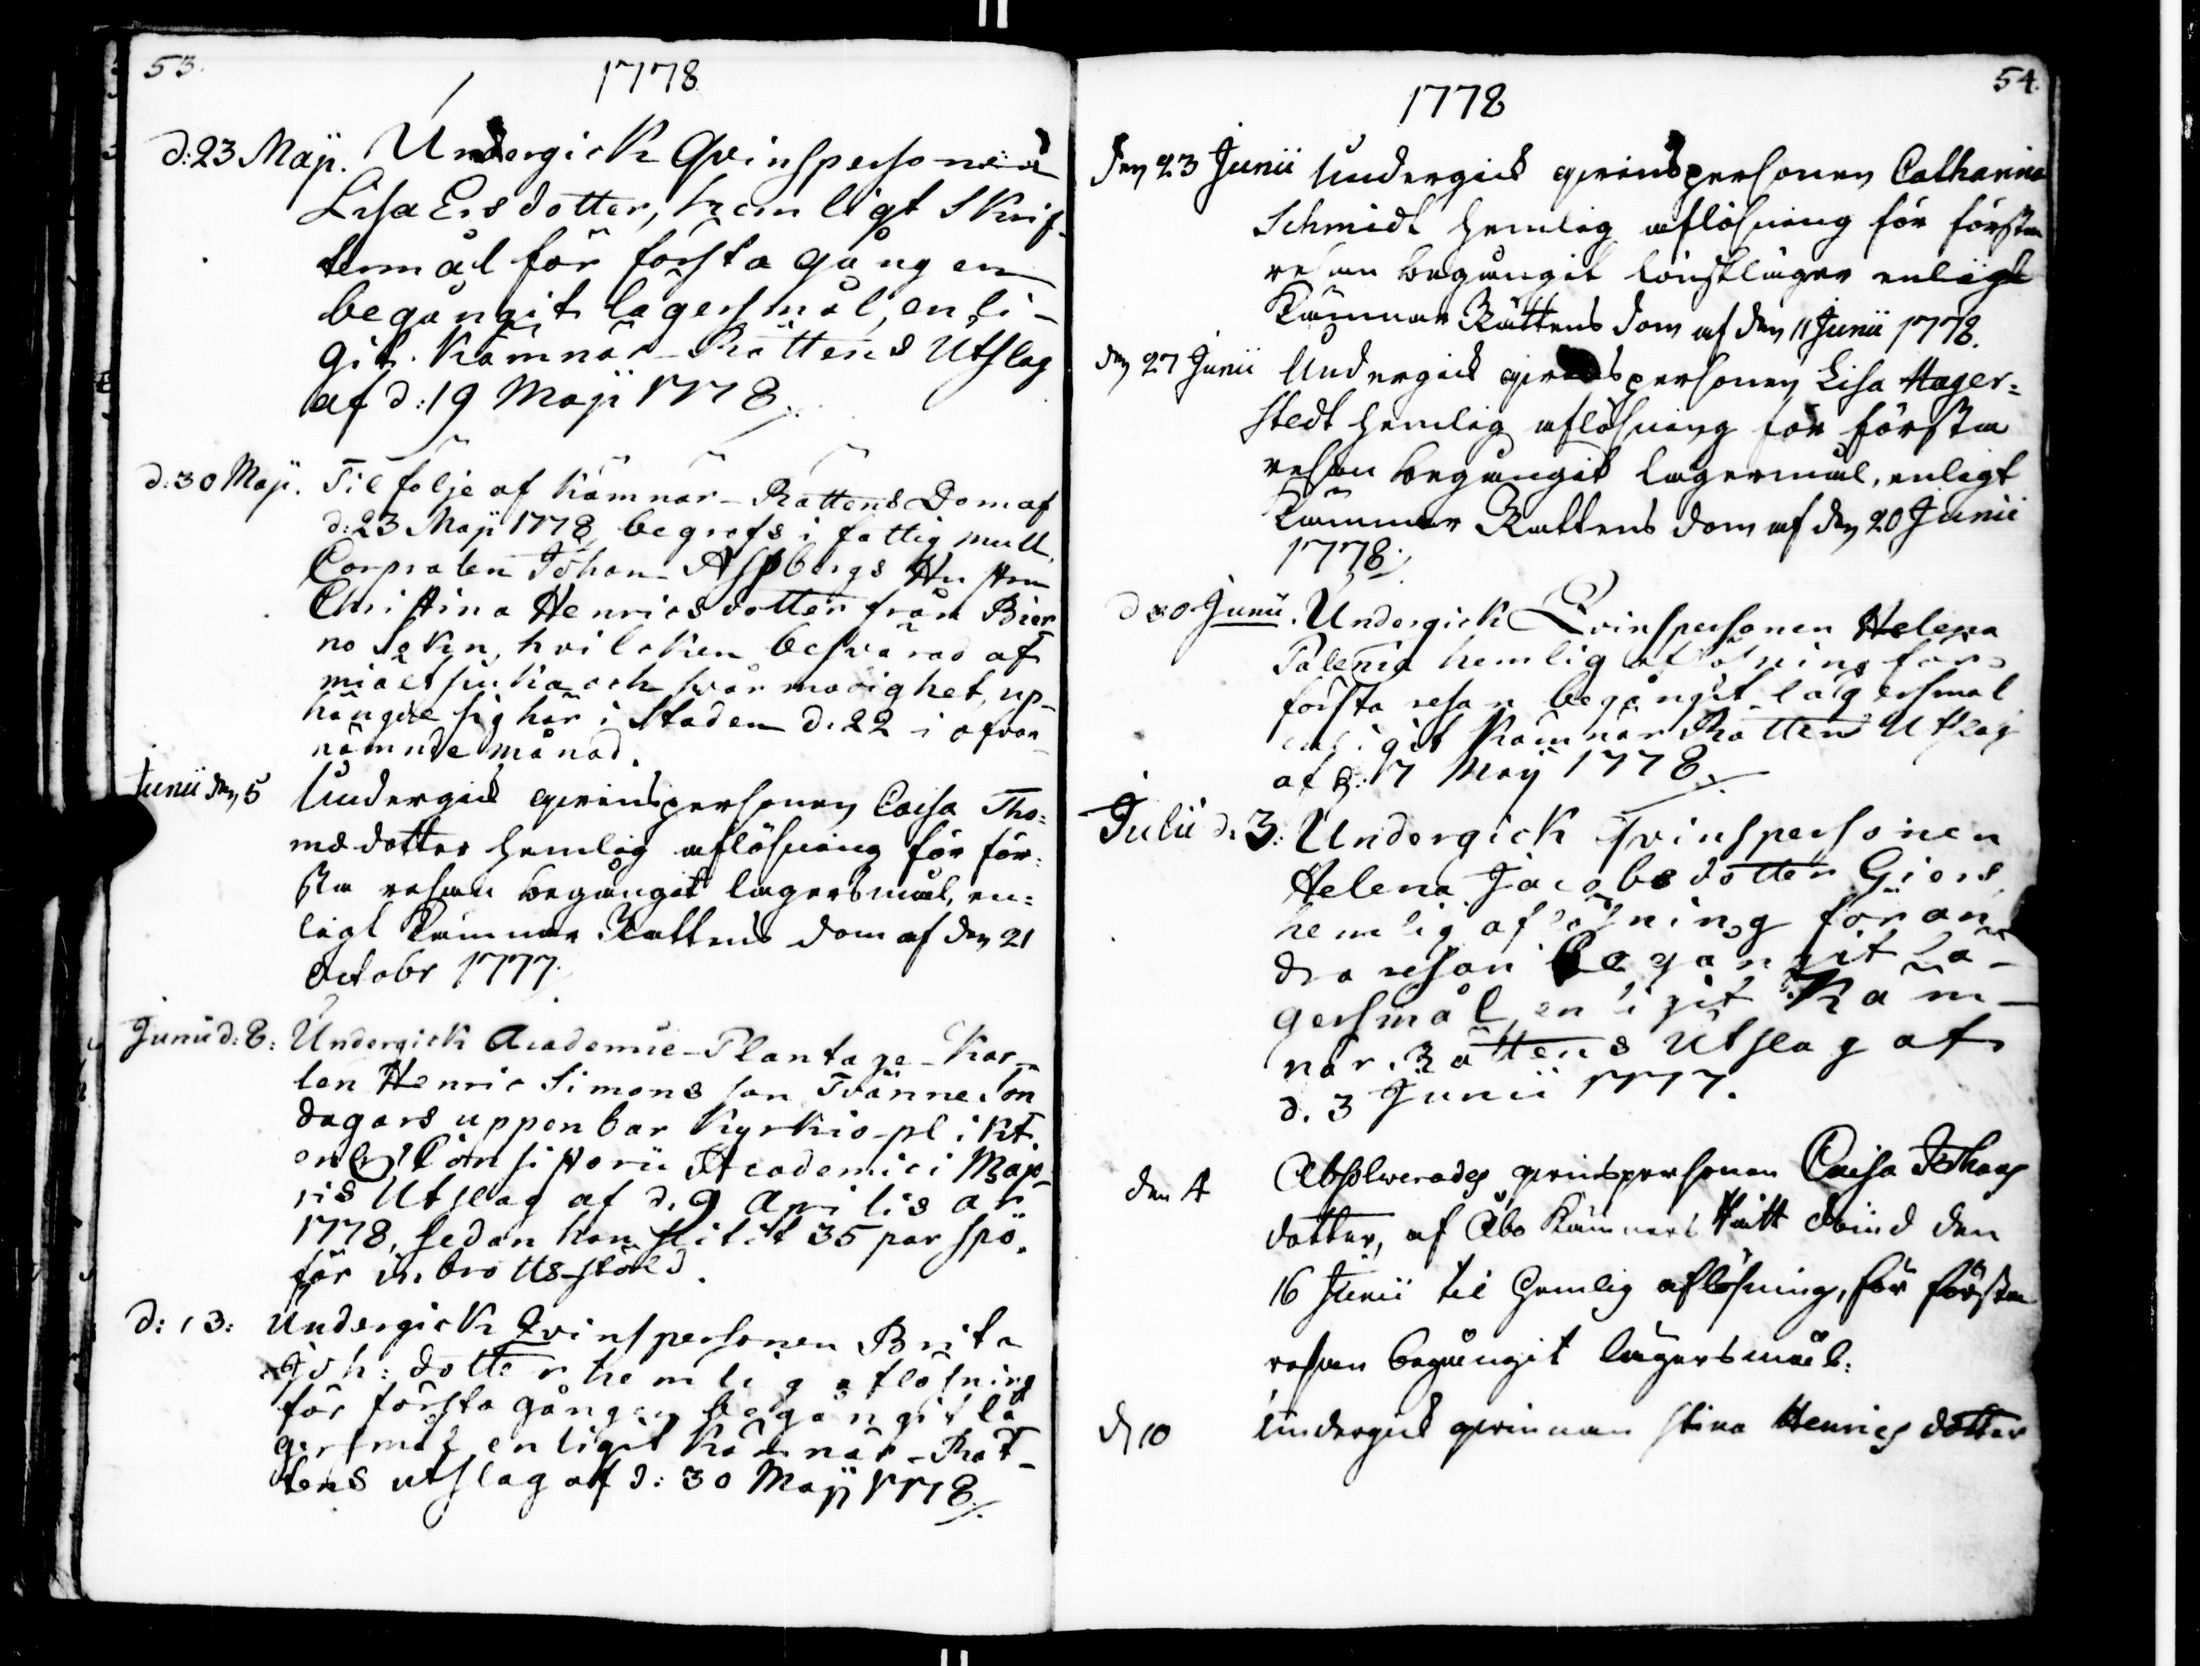 53.
1778
d: 23 Maji. Undergick Qvinspersonen
Lisa Ersdotter, hemligt Skrif-
termål för första gången
begångit lägersmål, enli-
git Kämnärs-Rättens Utslag
af d: 19 Maji 1778.
d: 30 Maji. Til följe af Kämnärs-Rättens Dom af
d: 23 Maji 1778, begrofs i fattig mull,
Corpralen Johan Aspbergs Hustru
Christina Henricsdotter från Bier
no Sokn, hvilcken besvärad af
mieltsiuka och svårmodighet, up-
hängde sig här i Staden d. 22 i ofvan-
nämnde månad.
Junii den 5 Undergick qvinspersonen Caisa Tho-
mæ dotter hemlig aflösning för för-
sta resan begångit lägersmål, en-
ligt Kämnärs Rättens dom af den 21
Octobr 1777.
Junii d: 8: Undergick Academie-Plantage-Kar-
len Henric Simonsson Tvänne Sön
dagars uppenbar Kyrkio-plikt,
enligt Consistorii Academici Majo-
ris Utslag af d. 9 Aprilis år
1778, sedan han slitit 35 par spö,
för inbrotts-stöld.
d: 13: Undergick Qvinspersonen Brita
Joh: dotter hemlig aflösning
för första gången begångit lä-
gersmål, enligit Kämnärs-Rät-
tens utslag af d: 30 Maji 1778.
54.
1778
Den 23 Junii Undergick qvinspersonen Catharina
Schmidt hemlig aflösning för första
resan begångit lönskläger enligt
Kämnärs Rättens dom af den 11 Junii 1778.
den 27 Junii Undergick qvinspersonen Lisa Hager-
stedt hemlig aflösning för första
resan begångit lägersmål, enligt
Kämnärs Rättens dom af den 20 Junii
1778.
d 30 Junii. Undergick Qvinspersonen Helena
Palenia hemlig aflösning för
första resan begångit lägersmål
enligit Kämnärs Rättens Utslag
af d: 17 Maji 1778.
Julii d: 3: Undergick Qvinspersonen
Helena Jacobsdotter Giers,
hemlig aflösning för an
dra resan begångit lä-
gersmål, enligit Käm-
närs Rättens Utslag af
d. 3 Junii 1777.
den 4 Absolverades qvinspersonen Caisa Johans
dotter, af Åbo Kämners Rätt dömd den
16 Junii til hemlig aflösning, för första
resan begångit lägersmål.
d 10 Undergick qvinnan Stina Henrics dotter